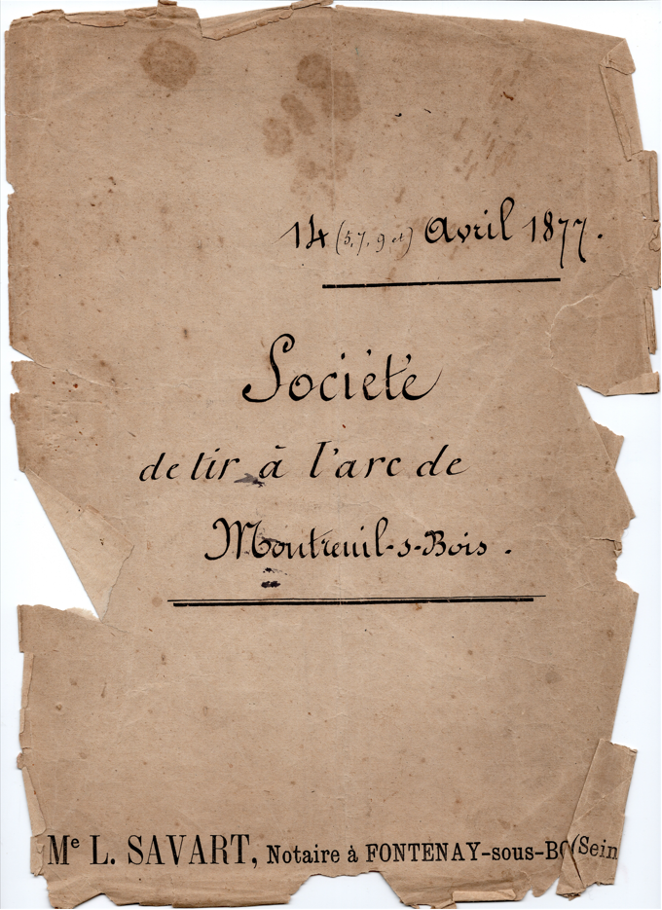 14 (5, 7, 9 et) Avril 1877.
Société
de tir à l'arc de
Montreuil-s-Bois.
Me L. SAVART, Notaire à FONTENAY-sous-BO (Sein